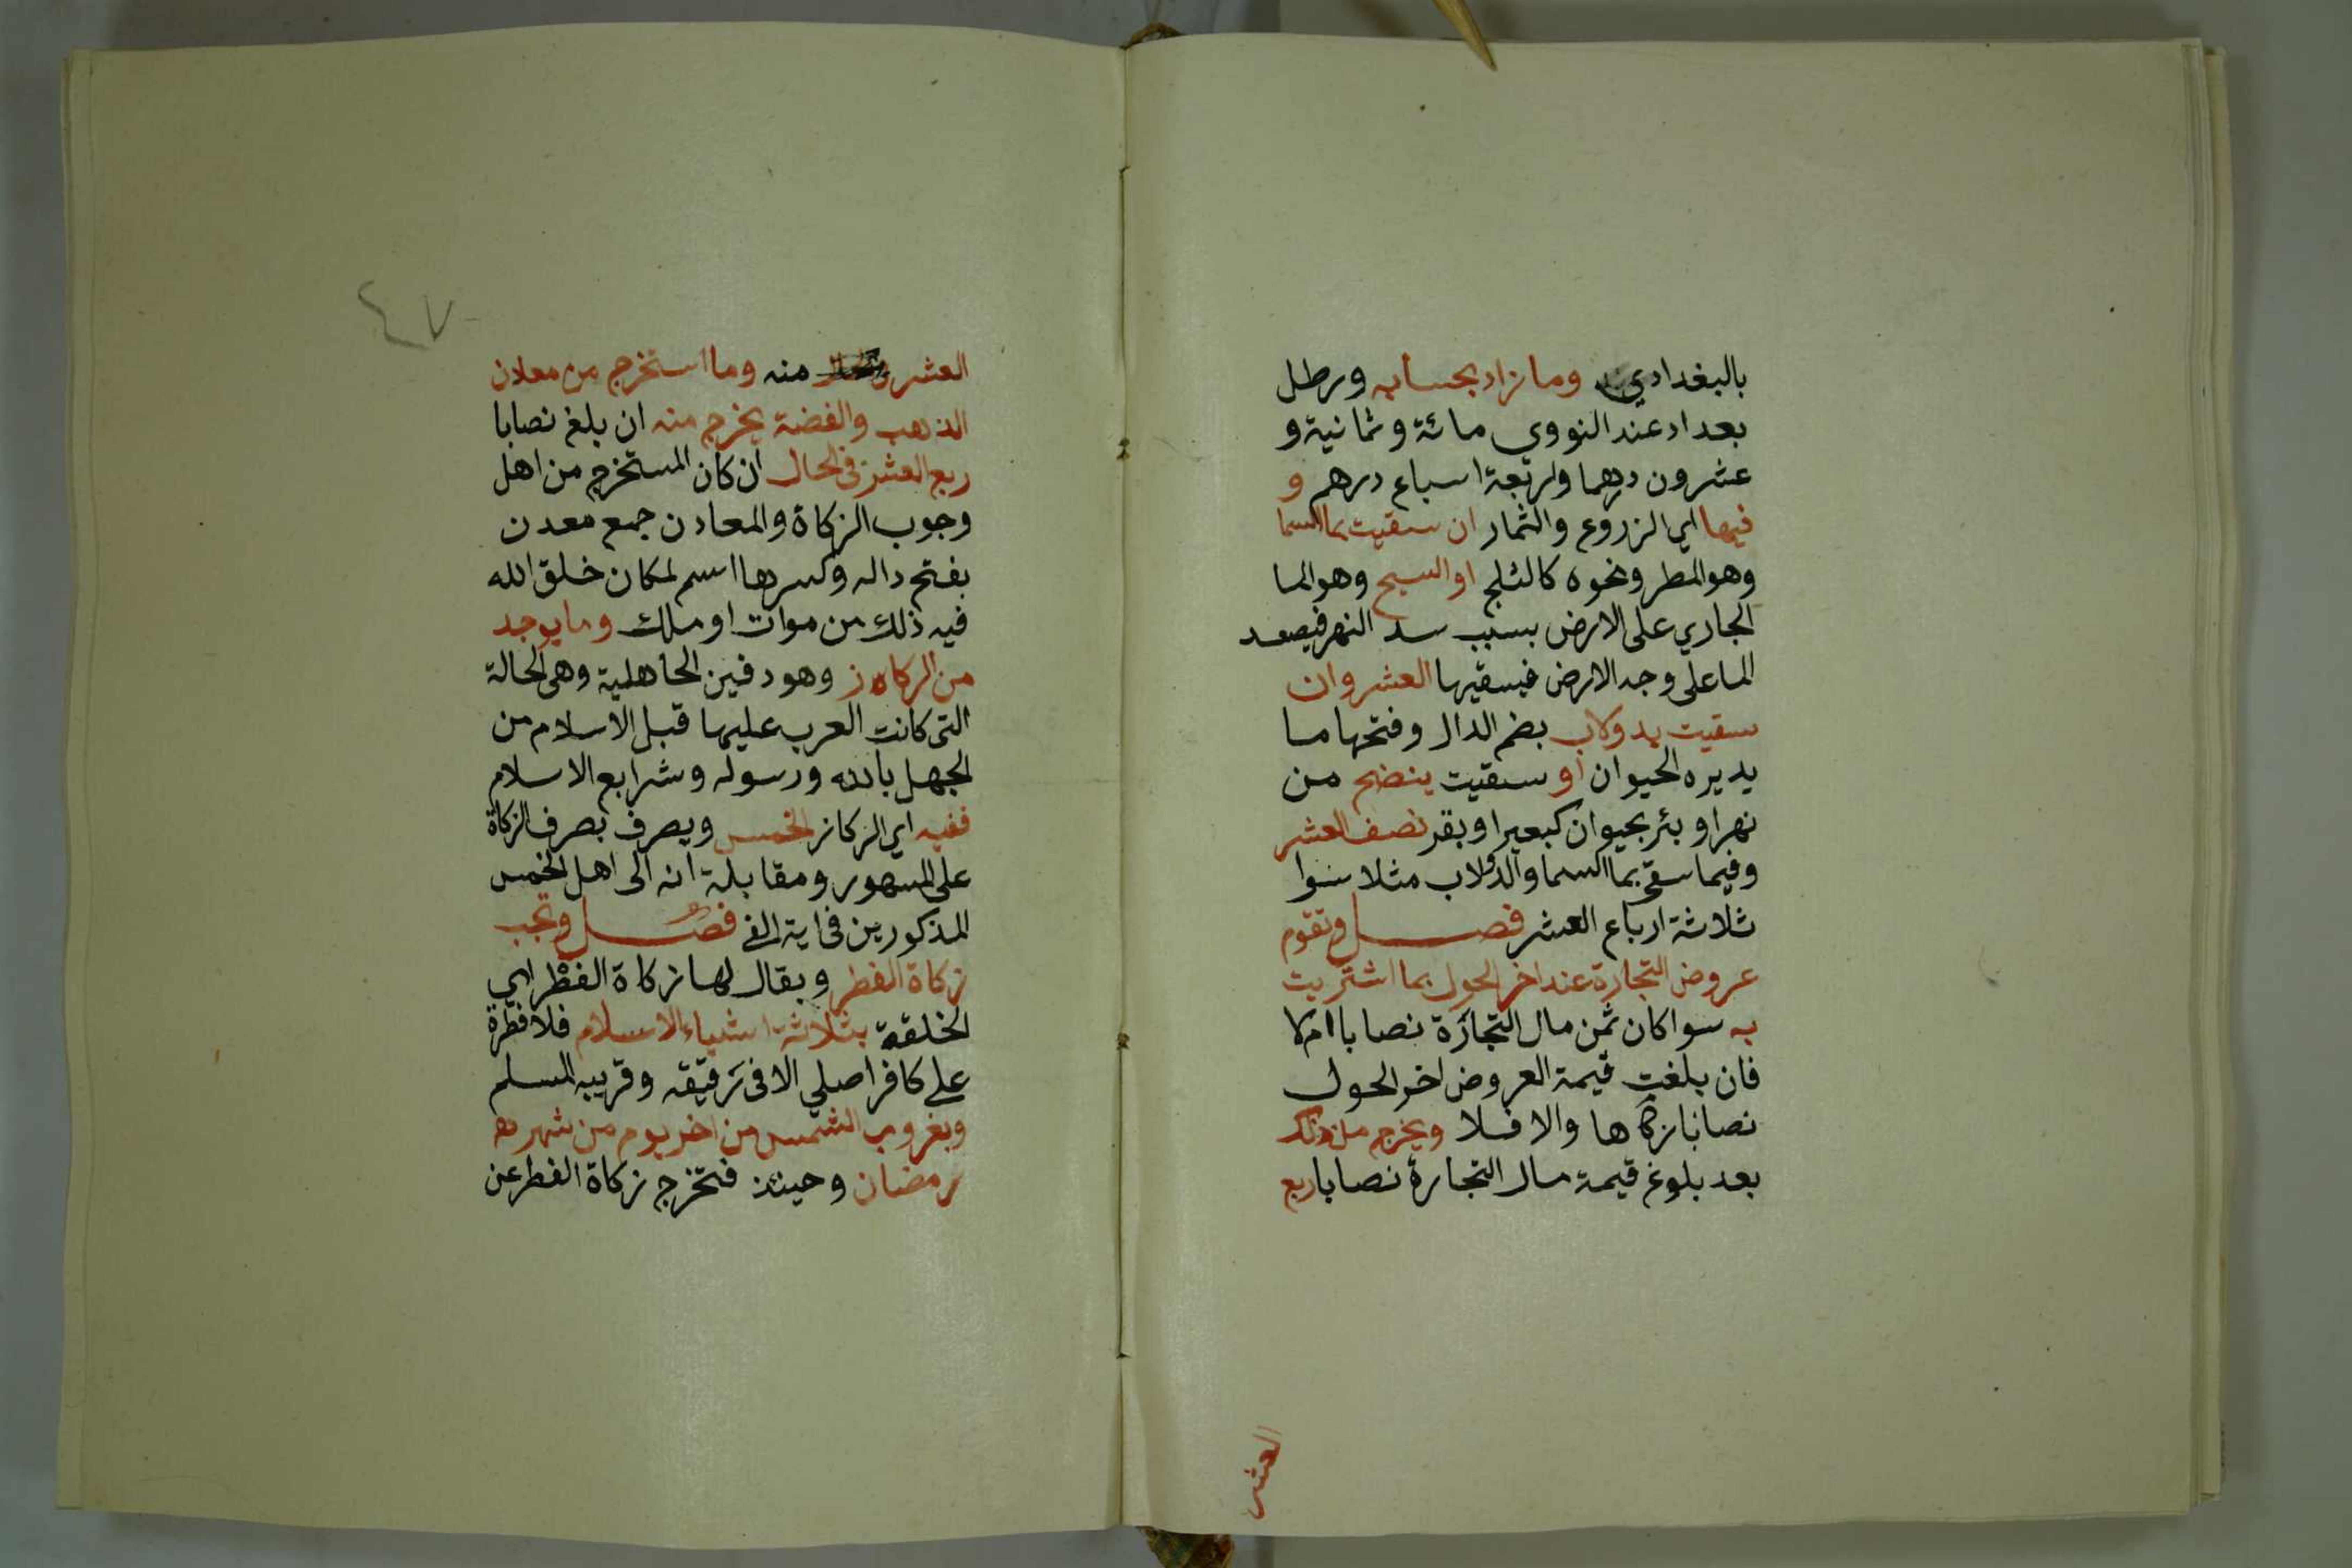 بالبغدادي وما زاد بحسابه ورطل
بغداد عند النووي مائة وثمانية و
عشرون درهما واربعة اسباع درهم و
فيها اي الزروع والثمار ان سقيت بما السما
وهو المطر ونحوه كالثلج او السيح وهو الما
الجاري على الارض بسبب سد النهر فيصعد
الما على وجه الارض فيسقيها العشر وان
سقيت بدولاب بضم الدال وفتحها ما
يديره الحيوان او سقيت بنضح من
نهر او بئر بحيوان كبعير او بقر نصف العشر
وفيما سقى بما السما والدولاب مثلا سوا
ثلاثة ارباع العشر فصل وتقوم
عروض التجارة عند اخر الحول بما اشتريت
به سوا كان ثمن مال التجارة نصابا ام لا
فان بلغت قيمة العروض اخر الحول
نصابا زكاها والا فلا ويخرج من ذلك
بعد بلوغ قيمة مال التجارة نصابا ربع
العشر
٤٧
العشر منه وما استخرج من معادن
الذهب والفضة يخرج منه ان بلغ نصابا
ربع العشر في الحال ان كان المستخرج من اهل
وجوب الزكاة والمعادن جمع معدن
بفتح داله وكسرها اسم لمكان خلق الله
فيه ذلك من موات او ملك وما يوجد
من الركاز وهو دفين الجاهلية وهي الحالة
التى كانت العرب عليها قبل الاسلام من
الجهل بالله ورسوله وشرايع الاسلام
ففيه اي الركاز الخمس ويصرف بصرف الزكاة
على المسهور ومقابلة انه الى اهل الخمس
المذكورين في اية الفي فصل وتجب
زكاة الفطر ويقال لها زكاة الفطر اي
الخلقة بثلاثة اشياء الاسلام فلا فطرة
على كافر اصلي الا فى رقيقه وقريبه المسلم
وبغروب الشمس من اخر يوم من شهر
رمضان وحينئذ فتخرج زكاة الفطر عن